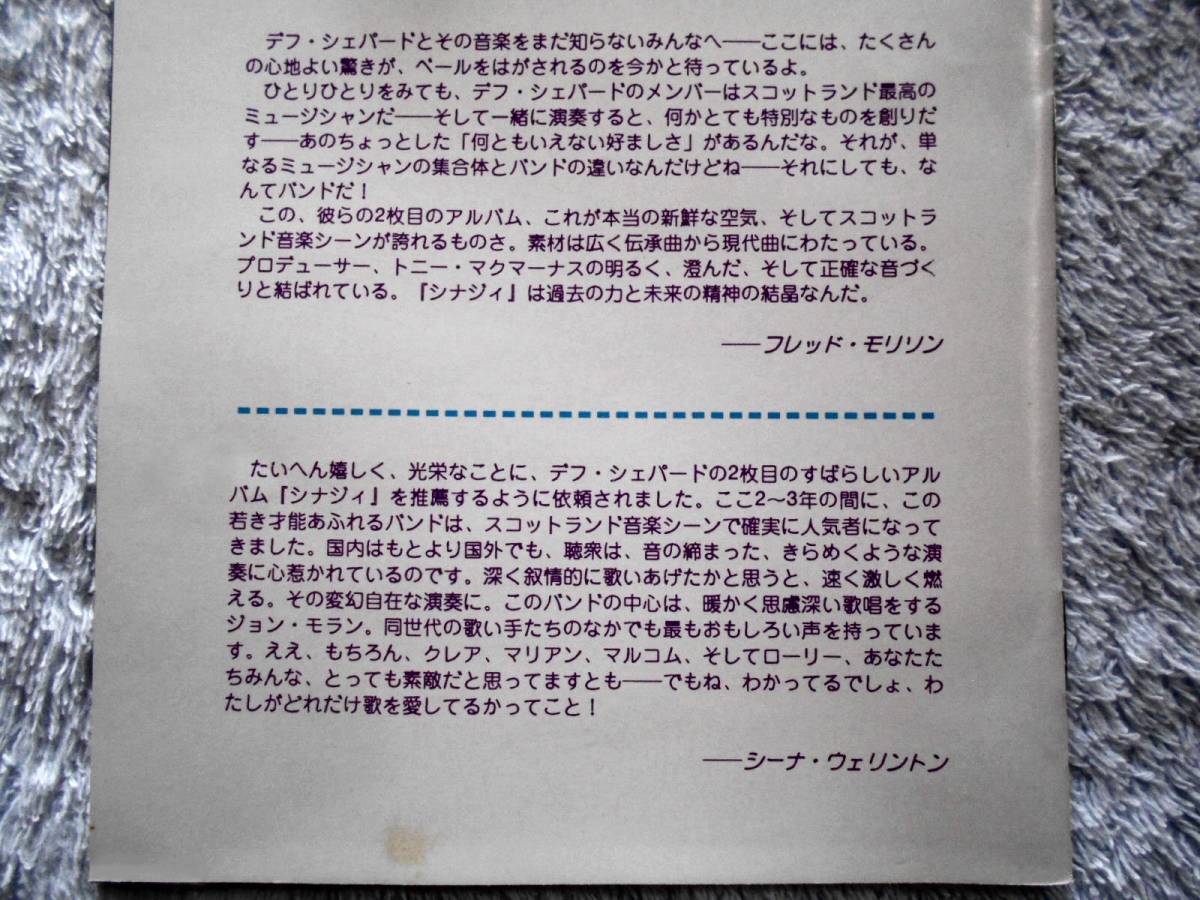 デフ・シェパードとその音楽をまだ知らないみんなへ――ここには、たくさん
の心地よい驚きが、ベールをはがされるのを今かと待っているよ。
ひとりひとりをみても、デフ・シェパードのメンバーはスコットランド最高の
ミュージシャンだ――そして一緒に演奏すると、何かとても特別なものを創りだ
す――あのちょっとした「何ともいえない好ましさ」があるんだな。それが、単
なるミュージシャンの集合体とバンドの違いなんだけどね――それにしても、な
んてバンドだ！
この、彼らの2枚目のアルバム、これが本当の新鮮な空気、そしてスコットラ
ンド音楽シーンが誇れるものさ。素材は広く伝承曲から現代曲にわたっている。
プロデューサー、トニー・マクマーナスの明るく、澄んだ、そして正確な音づく
りと結ばれている。『シナジィ』は過去の力と未来の精神の結晶なんだ。
――フレッド・モリソン
たいへん嬉しく、光栄なことに、デフ・シェパードの2枚目のすばらしいアル
バム『シナジィ』を推薦するように依頼されました。ここ2～3年の間に、この
若き才能あふれるバンドは、スコットランド音楽シーンで確実に人気者になって
きました。国内はもとより国外でも、聴衆は、音の締まった、きらめくような演
奏に心惹かれているのです。深く叙情的に歌いあげたかと思うと、速く激しく燃
える。その変幻自在な演奏に。このバンドの中心は、暖かく思慮深い歌唱をする
ジョン・モラン。同世代の歌い手たちのなかでも最もおもしろい声を持っていま
す。ええ、もちろん、クレア、マリアン、マルコム、そしてローリー、あなたた
ちみんな、とっても素敵だと思ってますとも――でもね、わかってるでしょ、わ
たしがどれだけ歌を愛してるかってこと！
――シーナ・ウェリントン